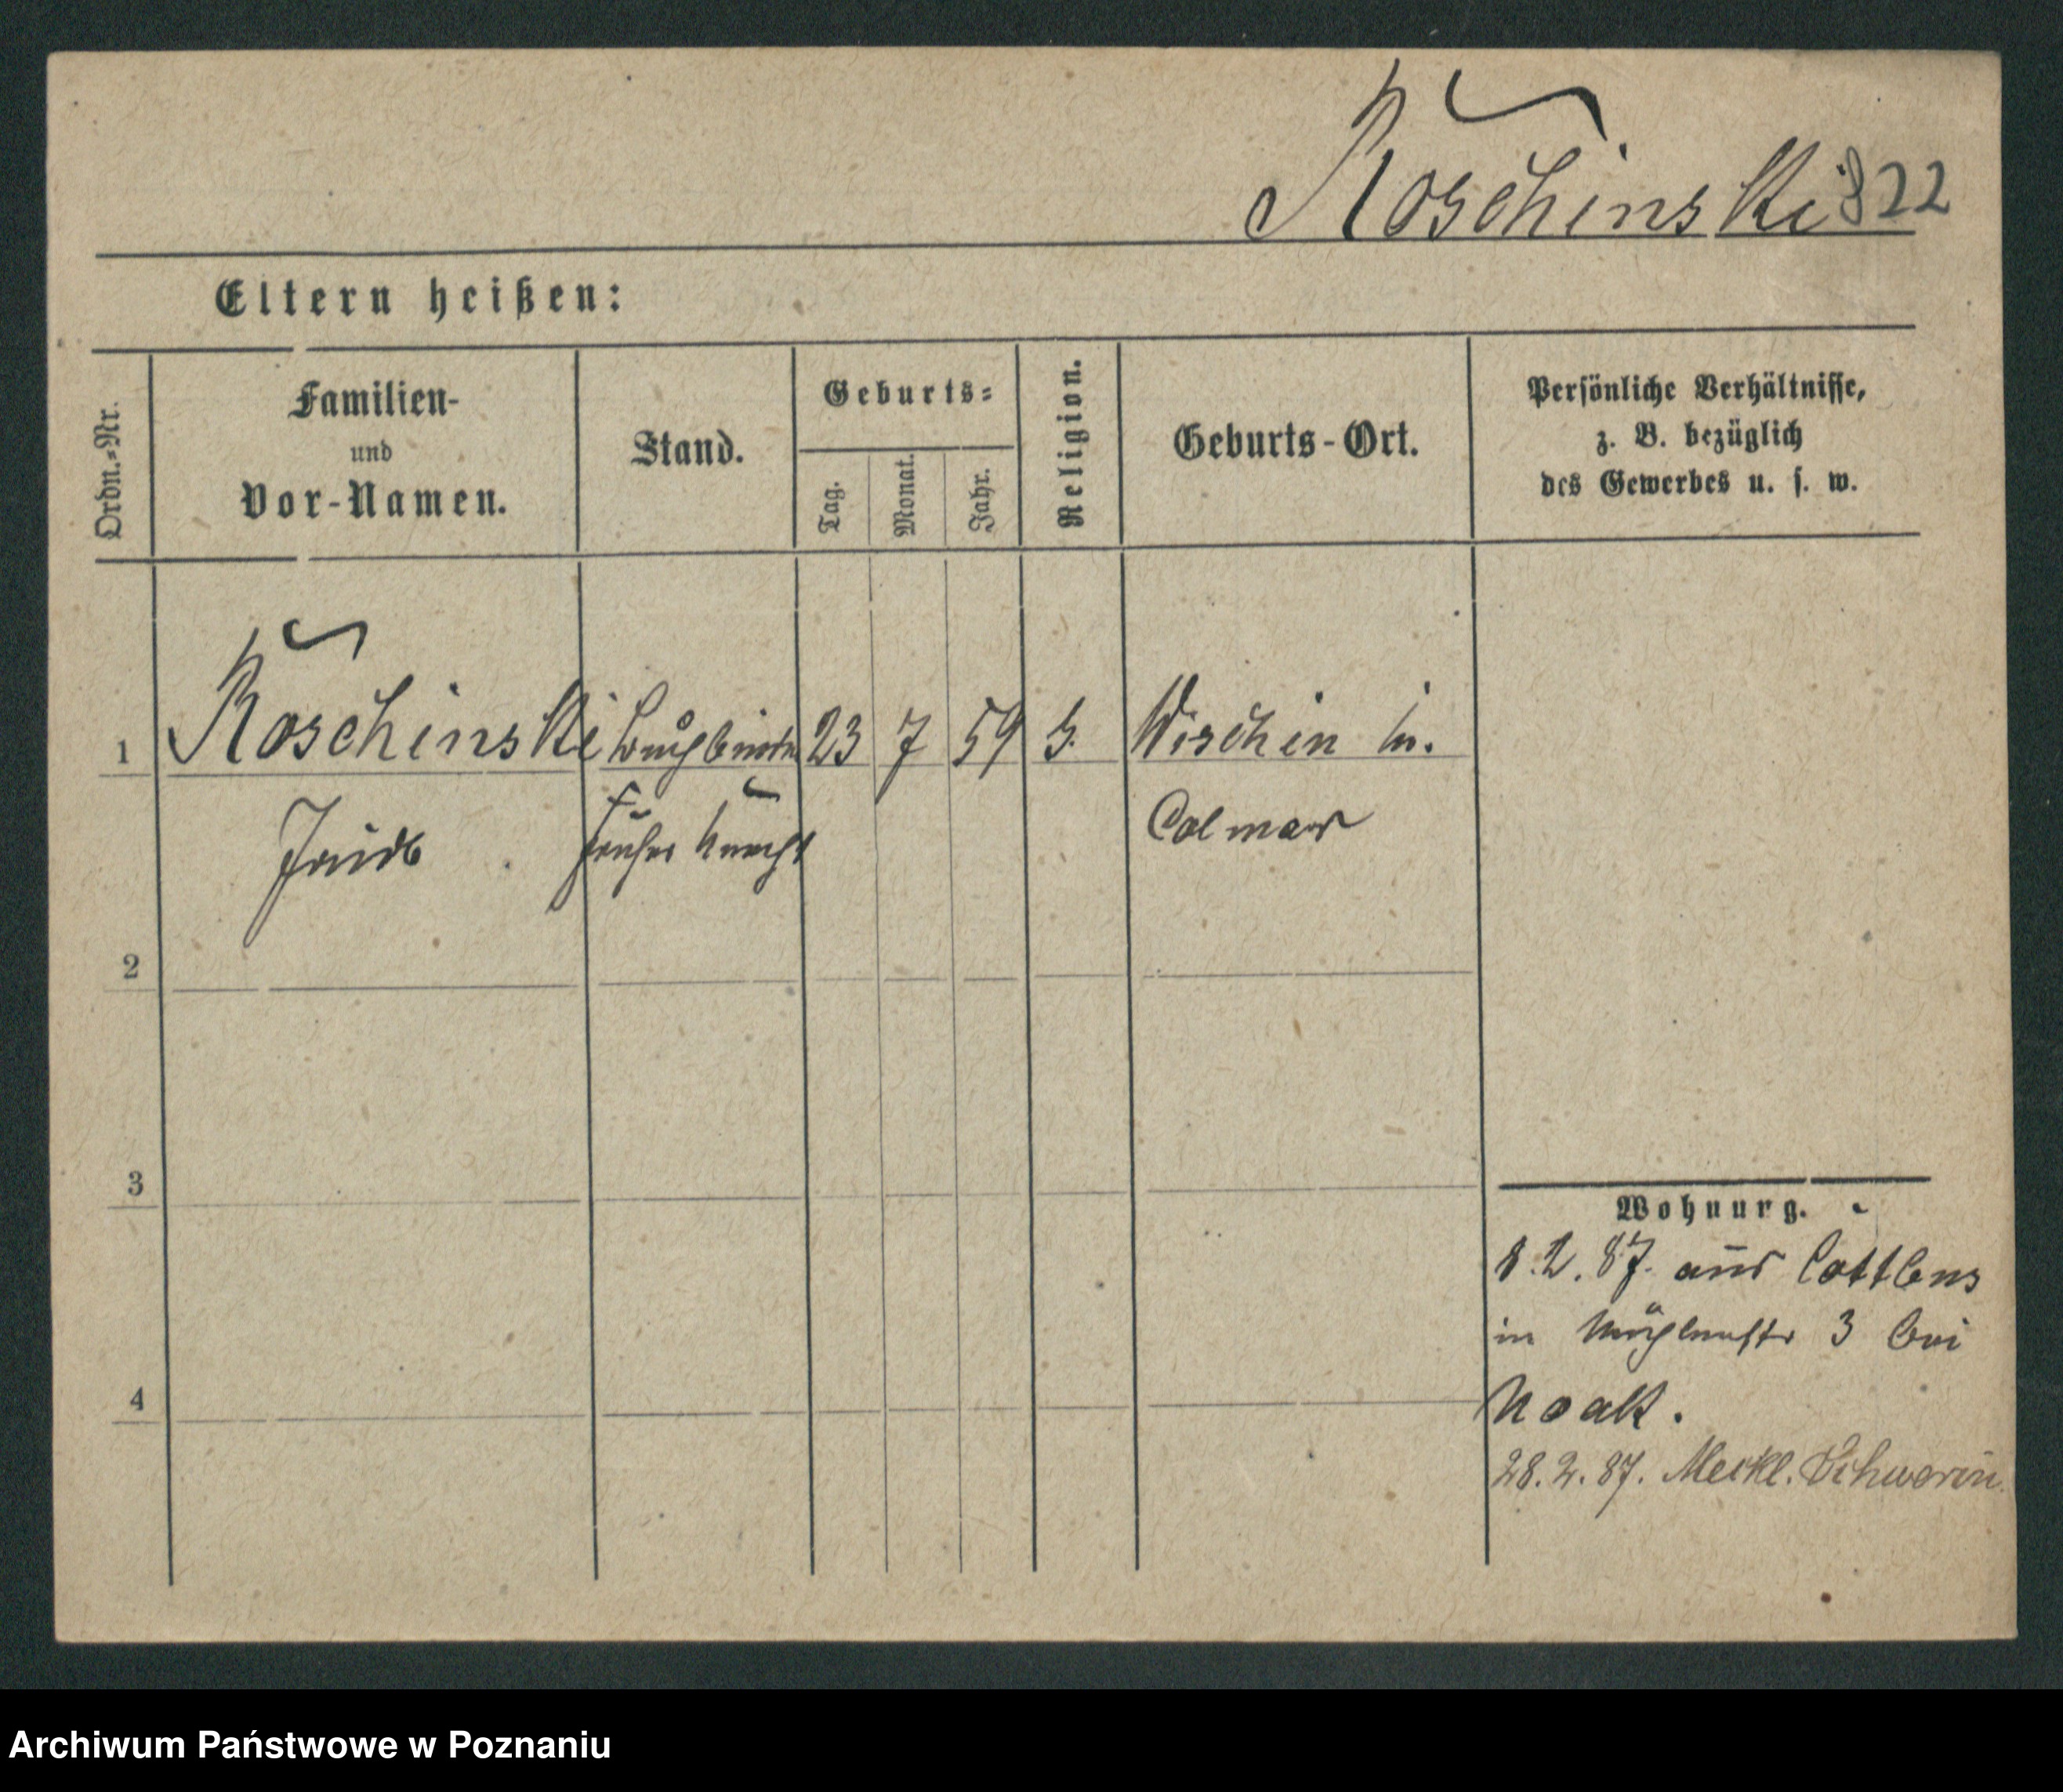 Roschinski 822
Eltern heißen:
Ordn.-Nr.
Familien-
und
Vor-Namen.
Stand.
Geburts-
Tag.
Monat.
Jahr.
Religion.
Geburts-Ort.
Persönliche Verhältnisse,
z. B. bezüglich
des Gewerbes u. s. w.
1 Roschinski 23 7 59 Wischin
früher Knecht Colmar
2
3
4
Wohnung.
1.2.87. aus Cottbus
in 3 bei
Noak.
28.2.87. Meckl. Schwerin.
Archiwum Państwowe w Poznaniu